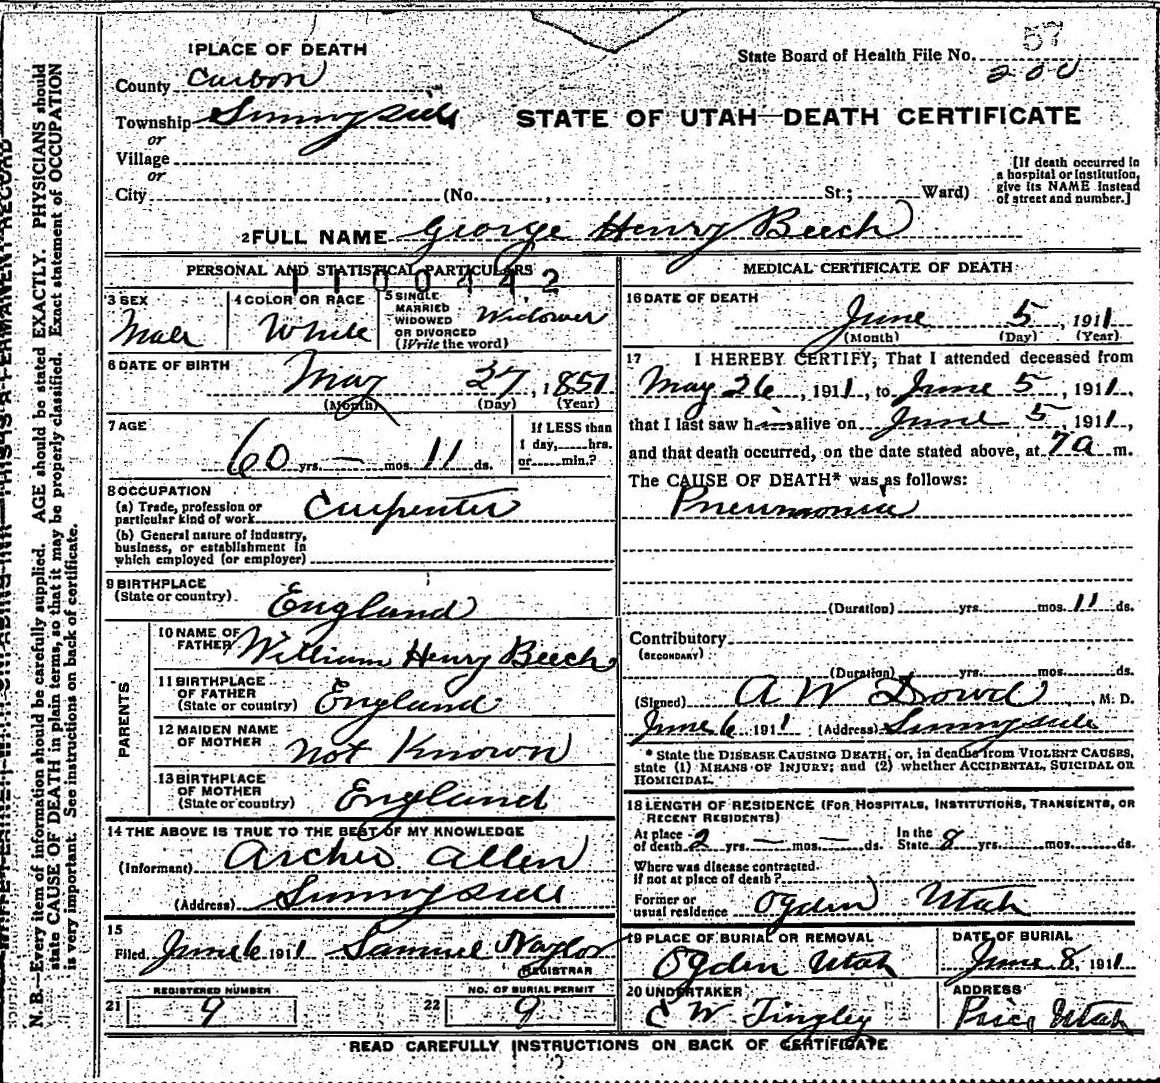 57
State Board of Health File No. 200
1 PLACE OF DEATH
County Carbon
Township Sunnyside
or
Village
or
City (No. , St.; Ward)
STATE OF UTAH—DEATH CERTIFICATE
[If death occurred in
a hospital or institution,
give its NAME instead
of street and number.]
2 FULL NAME George Henry Beech
PERSONAL AND STATISTICAL PARTICULARS
1100442
3 SEX
Male
4 COLOR OR RACE
White
5 SINGLE
MARRIED
WIDOWED
OR DIVORCED
(Write the word)
Widower
6 DATE OF BIRTH
May 27, 1851
(Month) (Day) (Year)
7 AGE
60 yrs. — mos. 11 ds.
If LESS than
1 day, hrs.
or min.?
8 OCCUPATION
(a) Trade, profession or
particular kind of work Carpenter
(b) General nature of industry,
business, or establishment in
which employed (or employer)
9 BIRTHPLACE
(State or country) England
PARENTS
10 NAME OF
FATHER William Henry Beech
11 BIRTHPLACE
OF FATHER
(State or country) England
12 MAIDEN NAME
OF MOTHER not Known
13 BIRTHPLACE
OF MOTHER
(State or country) England
14 THE ABOVE IS TRUE TO THE BEST OF MY KNOWLEDGE
(Informant) Archie Allen
(Address) Sunnyside
15
Filed June 6 1911 Samuel Naylor
REGISTRAR
REGISTERED NUMBER
21 9
NO. OF BURIAL PERMIT
22 9
MEDICAL CERTIFICATE OF DEATH
16 DATE OF DEATH
June 5, 1911
(Month) (Day) (Year)
17 I HEREBY CERTIFY, That I attended deceased from
May 26, 1911, to June 5, 1911,
that I last saw him alive on June 5 1911,
and that death occurred, on the date stated above, at 7a m.
The CAUSE OF DEATH* was as follows:
Pneumonia
(Duration) yrs. mos. 11 ds.
Contributory
(SECONDARY)
(Duration) yrs. mos. ds.
(Signed) A W Dowd M. D.
June 6 1911 (Address) Sunnyside
* State the DISEASE CAUSING DEATH, or, in deaths from VIOLENT CAUSES,
state (1) MEANS OF INJURY; and (2) whether ACCIDENTAL, SUICIDAL OR
HOMICIDAL.
18 LENGTH OF RESIDENCE (FOR HOSPITALS, INSTITUTIONS, TRANSIENTS, OR
RECENT RESIDENTS)
At place
of death 2 yrs. — mos. — ds.
In the
State 8 yrs. mos. ds.
Where was disease contracted
if not at place of death?
Former or
usual residence Ogden Utah
19 PLACE OF BURIAL OR REMOVAL
Ogden Utah
DATE OF BURIAL
June 8, 1911
20 UNDERTAKER
C W Tingley
ADDRESS
Price Utah
READ CAREFULLY INSTRUCTIONS ON BACK OF CERTIFICATE
N. B.—Every item of information should be carefully supplied. AGE should be stated EXACTLY. PHYSICIANS should
state CAUSE OF DEATH in plain terms, so that it may be properly classified. Exact statement of OCCUPATION
is very important. See instructions on back of certificate.